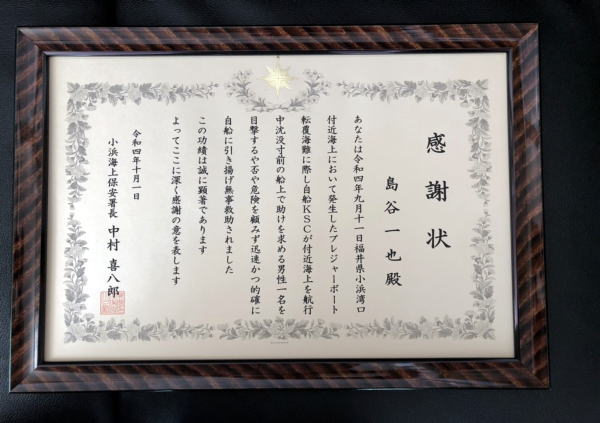 感謝状
島谷一也殿
あなたは令和四年九月十一日福井県小浜湾口
付近海上において発生したプレジャーボート
転覆海難に際し自船KSCが付近海上を航行
中沈没寸前の船上で助けを求める男性一名を
目撃するや否や危険を顧みず迅速かつ的確に
自船に引き揚げ無事救助されました
この功績は誠に顕著であります
よってここに深く感謝の意を表します
令和四年十月一日
小浜海上保安署長 中村 喜八郎